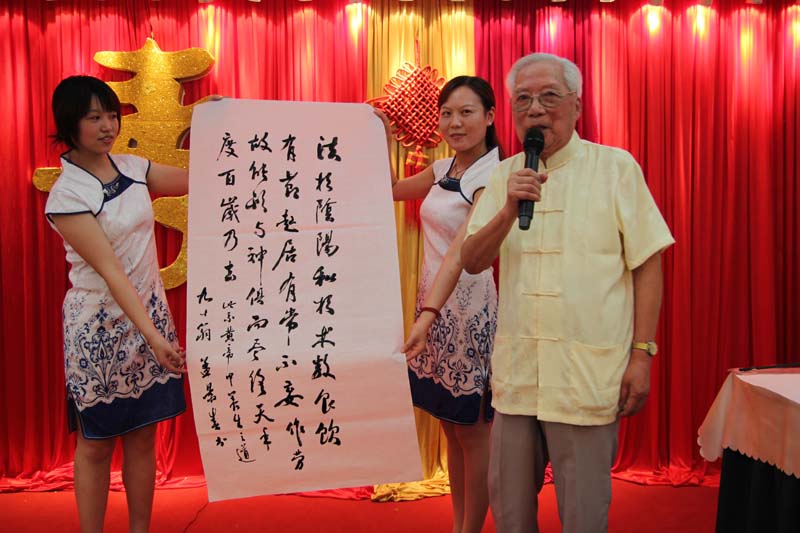 寿
法於陰陽和於术數食飲
有節起居有常不妄作劳
故能形与神俱而尽终天年
度百歲乃去
黄帝 養生之道
九十翁 景春书